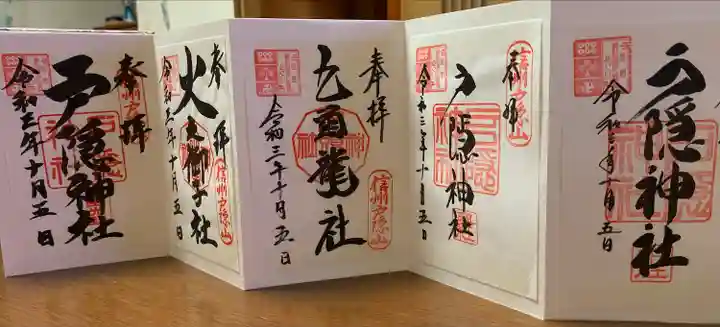 奉拝
戸隠神社
令和三年十月五日
奉拝
火之御子社
令和三年十月五日
信州戸隠山
奉拝
九頭龍社
令和三年十月五日
信州戸隠山
奉拝
戸隠神社
令和三年十月五日
信州戸隠山
戸隠神社
令和三年十月五日